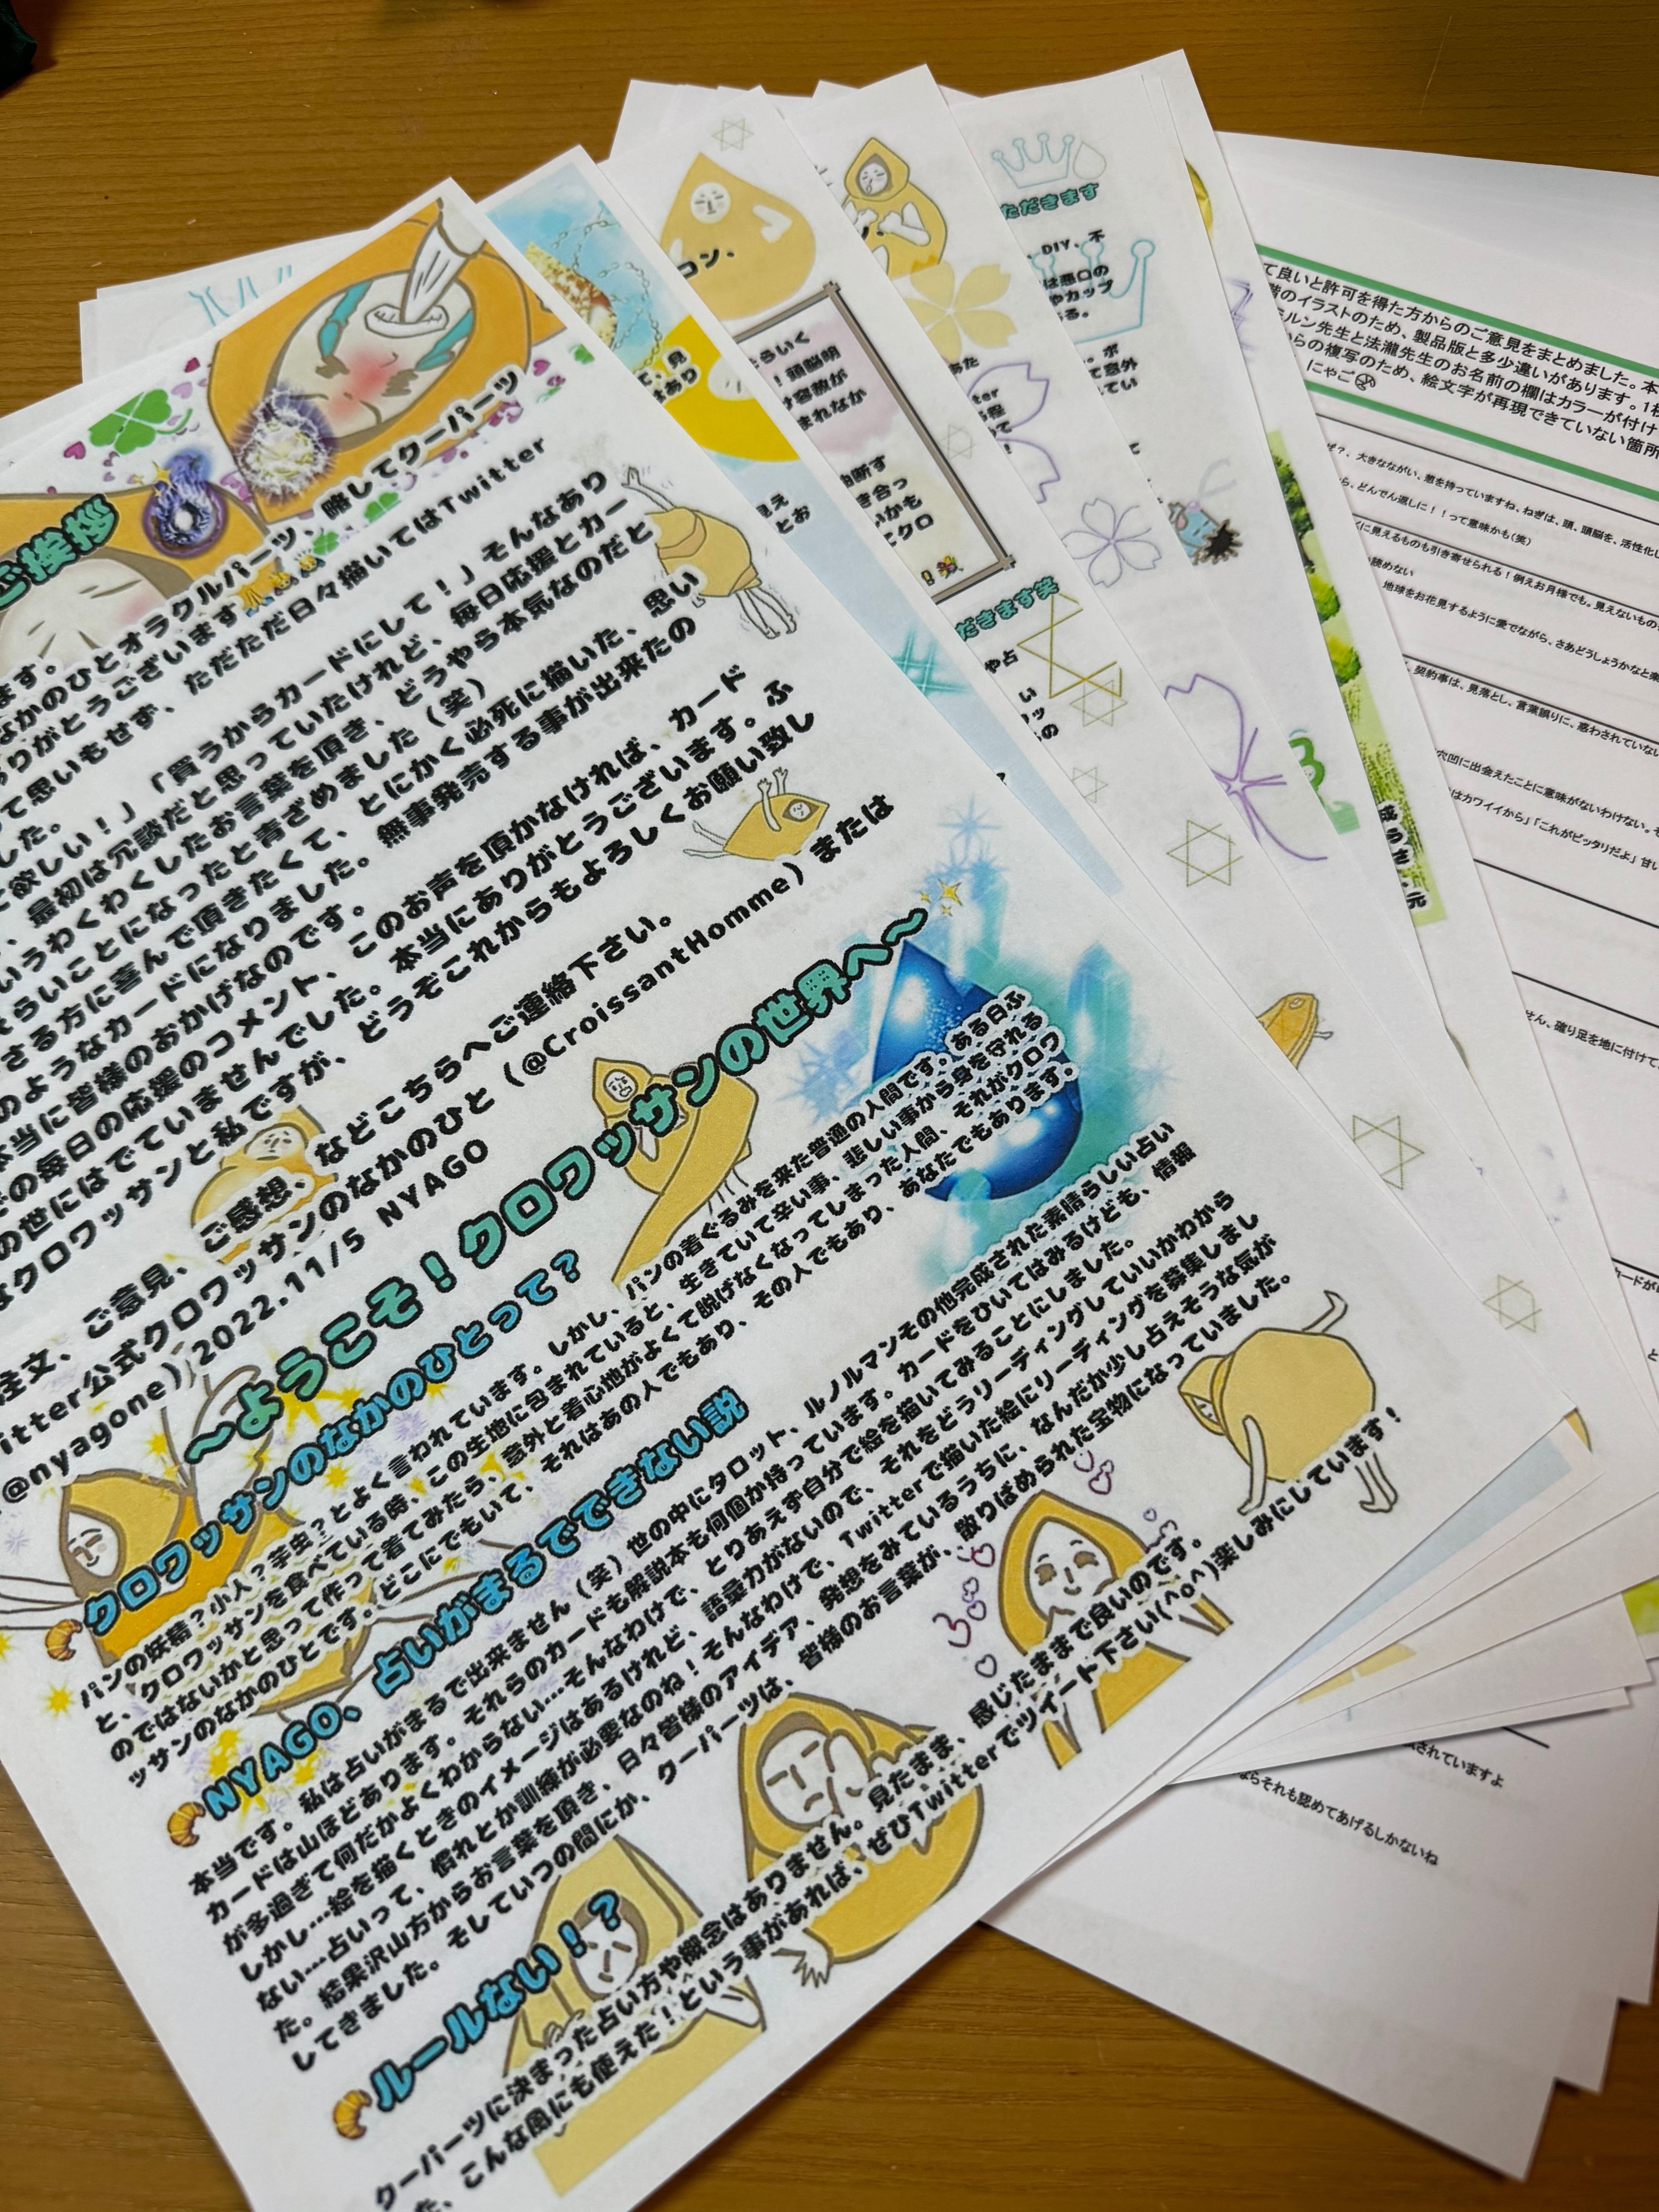 ご挨拶
ます。
なかのひとオラクルパーツ、略してクーパーツ
ありがとうございます
って思いもせず、ただただ日々描いてはTwitter
した。
て欲しい！」「買うからカードにして！」そんなあり
、最初は冗談だと思っていたけれど、毎日応援とカー
いうわくわくしたお言葉を頂き、どうやら本気なのだと
えらいことになったと青ざめました（笑）
さる方に喜んで頂きたくて、とにかく必死に描いた、思い
のようなカードになりました。無事発売する事が出来たの
本当に皆様のおかげなのです。
での毎日の応援のコメント、このお声を頂かなければ、カード
の世にはでていませんでした。本当にありがとうございます。ふ
なクロワッサンと私ですが、どうぞこれからもよろしくお願い致し
注文、ご意見、ご感想、などこちらへご連絡下さい。
itter公式クロワッサンのなかのひと（@CroissantHomme）または
@nyagone）2022.11/5 NYAGO
～ようこそ！クロワッサンの世界へ～
クロワッサンのなかのひとって？
パンの妖精？小人？芋虫？とよく言われています。しかし、パンの着ぐるみを来た普通の人間です。ある日ふ
と、クロワッサンを食べている時、この生地に包まれていると、生きていて辛い事、悲しい事から身を守れる
のではないかと思って作って着てみたら、意外と着心地がよくて脱げなくなってしまった人間、それがクロワ
ッサンのなかのひとです。どこにでもいて、それはあの人でもあり、その人でもあり、あなたでもあります。
NYAGO、占いがまるでできない説
本当です。私は占いがまるで出来ません（笑）世の中にタロット、ルノルマンその他完成された素晴らしい占い
カードは山ほどあります。それらのカードも解説本も何個か持っています。カードをひいてはみるけども、情報
が多過ぎて何だかよくわからない…そんなわけで、とりあえず自分で絵を描いてみることにしました。
しかし…絵を描くときのイメージはあるけれど、語彙力がないので、それをどうリーディングしていいかわから
ない…占いって、慣れとか訓練が必要なのね！そんなわけで、Twitterで描いた絵にリーディングを募集しまし
た。結果沢山方からお言葉を頂き、日々皆様のアイデア、発想をみているうちに、なんだか少し占えそうな気が
してきました。そしていつの間にか、クーパーツは、皆様のお言葉が、散りばめられた宝物になっていました。
ルールない！？
クーパーツに決まった占い方や概念はありません。見たまま、感じたままで良いのです。
た、こんな風にも使えた！という事があれば、ぜひTwitterでツイート下さい(^o^)楽しみにしています！
コン、
らいく
！頭脳明
け容赦が
まれなか
油断す
き合っ
いかも
こクロ
だきます笑
や占
ただきます
、DIY、不
は悪口の
やカップ
る。
て意外
てい
て良いと許可を得た方からのご意見をまとめました。本
階のイラストのため、製品版と多少違いがあります。1枚
ミルン先生と法瀧先生のお名前の欄はカラーが付け
らの複写のため、絵文字が再現できていない箇所
にゃご
ぜ？、大きなながい、葱を持っていますね、ねぎは、頭、頭脳を、活性化し
ら、どんでん返しに！！って意味かも(笑)
くに見えるものも引き寄せられる！例えお月様でも。見えないもの
読めない
地球をお花見するように愛でながら、さあどうしょうかなと楽
、契約事は、見落とし、言葉誤りに、惑わされていない
穴凹に出会えたことに意味がないわけない。そ
はカワイイから」「これがピッタリだよ」甘い
せん、確り足を地に付けて
カードが
されていますよ
ならそれも認めてあげるしかないね